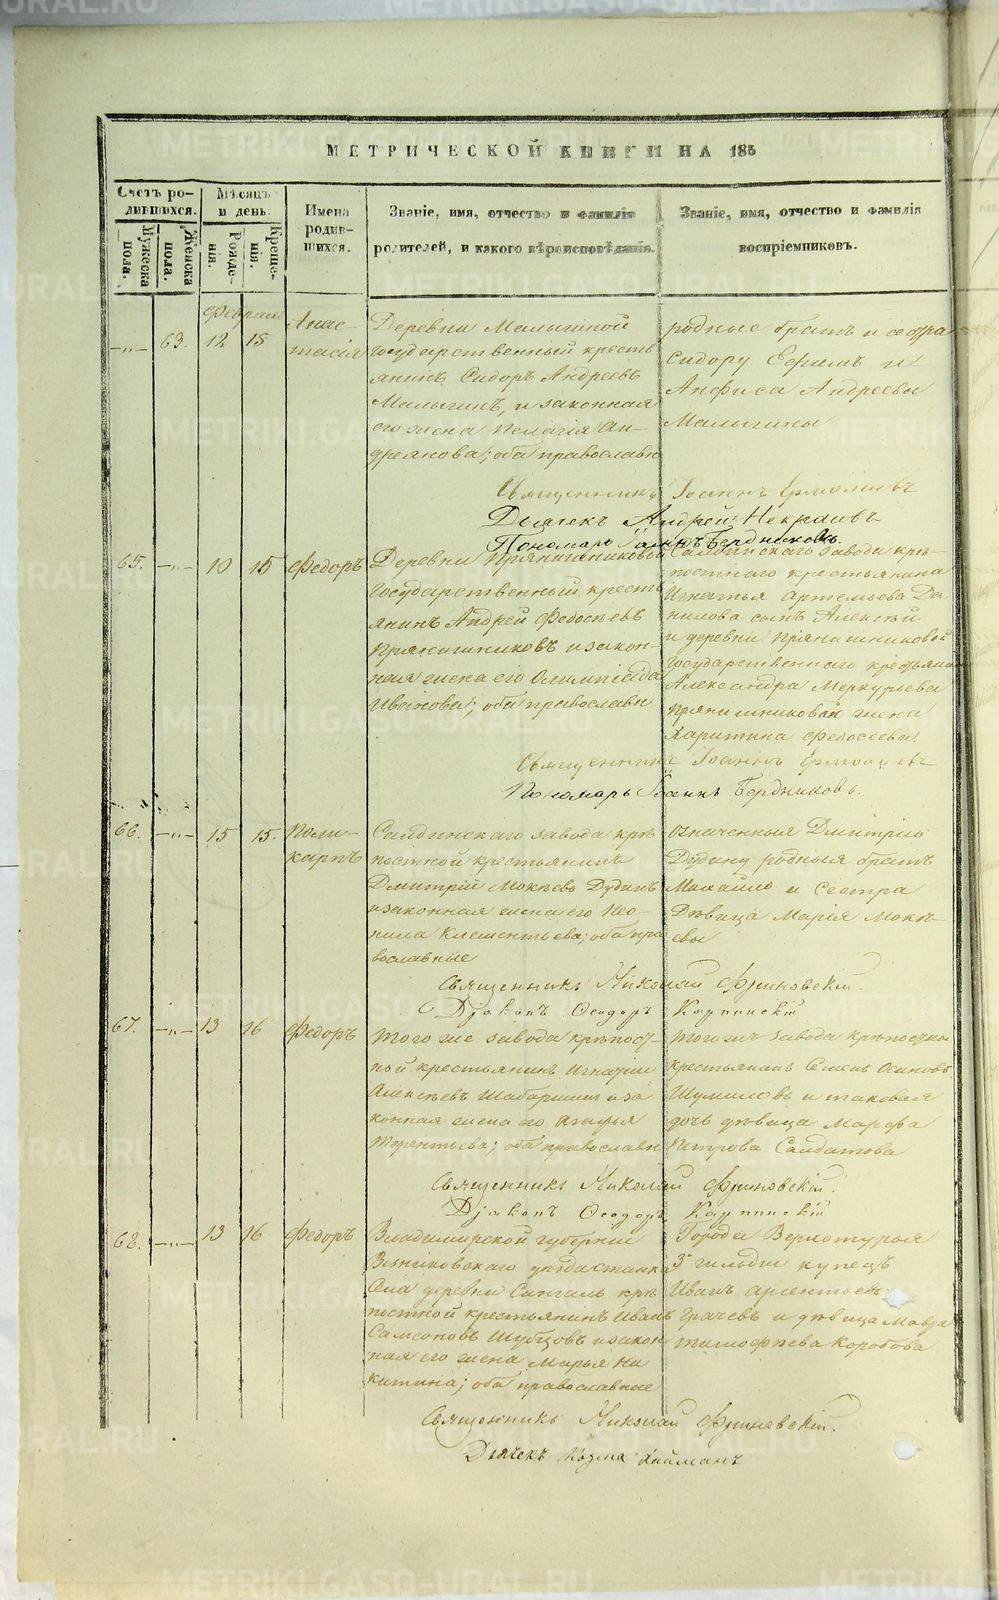 МЕТРИЧЕСКОЙ КНИГИ НА 185
Счетъ ро-
дившихся.
Мужеска
пола.
Женска
пола.
Мѣсяцъ
и день.
Рожде-
нія.
Креще-
нія.
Имена
родив-
шихся.
Званіе, имя, отчество и фамилія
родителей, и какого вѣроисповѣданія.
Званіе, имя, отчество и фамилія
воспріемниковъ.
Февраля
63.
12
15
Анас-
тасія
Деревни Малыгиной
государственный кресть
янинъ Сидоръ Андреевъ
Малыгинъ, и законная
его жена Пелагія Ан-
дреянова; оба православн
родные братъ и сестра
Сидору Ефимъ и
Анфиса Андреевы
Малыгины
Священникъ Іоаннъ Ермолинъ
Дьячекъ Андрей Некрасовъ
Пономарь Іоаннъ Бердниковъ.
65.
10
15
Федоръ
Деревни Пряничниковой
государственный кресть
янинъ Андрей Федосѣевъ
Пряничниковъ и закон-
ная жена его Олимпіада
Иванова; оба православн
Салдинскаго завода крѣ-
постнаго крестьянина
Игнатья Артемьева Да-
нилова сынъ Алексѣй
и деревни Пряничниковой
государственнаго крестьяни
Александра Меркурьева
Пряничникова жена
Харитина Федосеева
Священникъ Іоаннъ
Пономарь Іоаннъ Бердниковъ.
66.
15
15.
Поли-
карпъ
Салдинскаго завода крѣ
постной крестьянинъ
Дмитрій Мокѣевъ Дудинъ
и законная жена его Нео-
нила Клементьева; оба пра
вославные
означенныя Дмитрію
Дудину родныя братъ
Михайло и сестра
Дѣвица Марія Мокѣ-
евы
Священникъ Николай Фриновскій
Діаконъ Ѳеодоръ Карпинскій
67.
13
16
Федоръ
Того же завода крѣпост
ной крестьянинъ Игнатій
Алексѣевъ Шабаршинъ и за
конная жена его Агафья
Терентьева; оба православн
того же завода крѣпостной
крестьянинъ Семенъ Осиповъ
Шумиловъ и таковая
дочь дѣвица Марфа
Петрова Салдатова
Священникъ Николай Фриновскій.
Діаконъ Ѳеодоръ Карпинскій
68.
13
16
Федоръ
Владимирской губерніи
Вязниковскаго уѣзда Станка
Села деревни Сингаль крѣ
постной крестьянинъ Иванъ
Самсоновъ Шубцовъ и закон
ная его жена Марья Ни
китина; оба православные
Города Верхотурья
3й гильди купецъ
Иванъ Арсентьевъ
Грачевъ и дѣвица Мавра
Тимофѣева Коробова
Священникъ Николай Фриновскій.
Дьячекъ Козма
METRIKI.GASO-URAL.RU